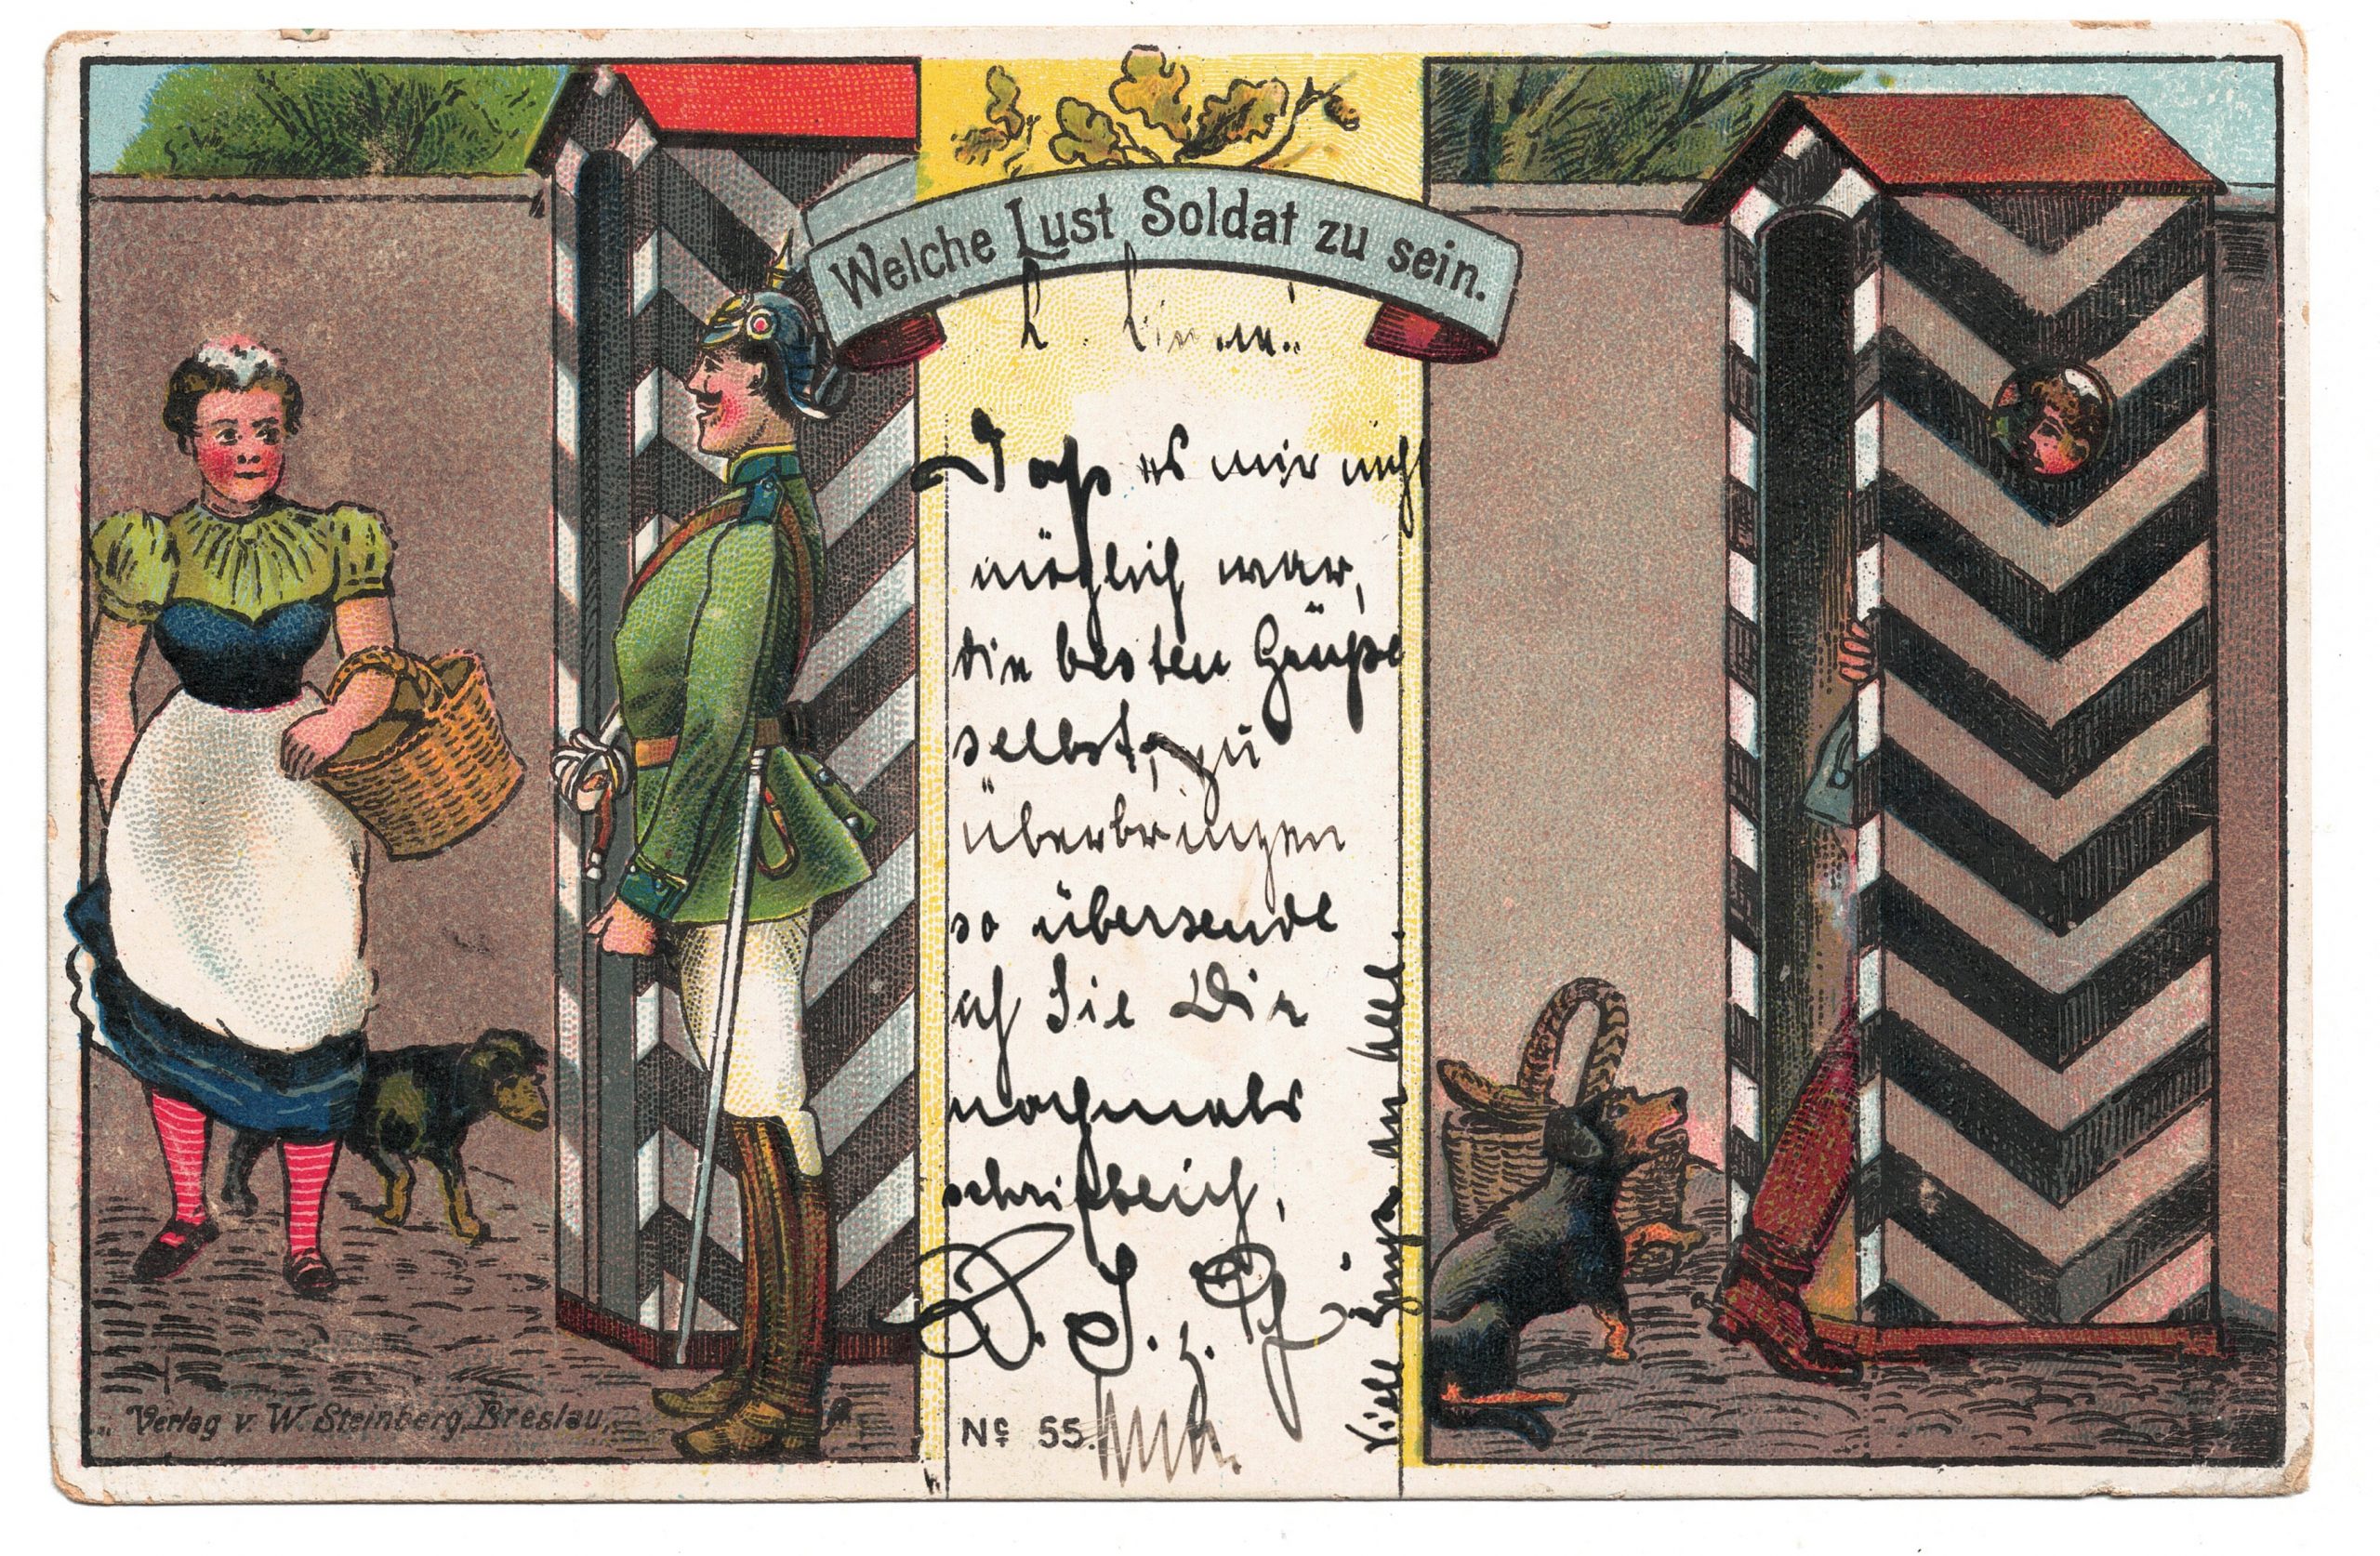 Welche Lust Soldat zu sein.
L.
Daß es mir nicht
möglich war,
die besten Grüße
selbst, zu
überbringen
so übersende
ich Sie Dir
nochmals
schriftlich.
Viele Grüße an
Verlag v. W. Steinberg, Breslau.
Nº 55.